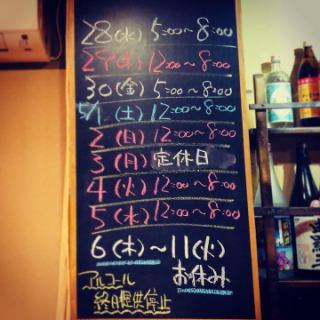 28(水) 5:00〜8:00
29(木) 12:00〜8:00
30(金) 5:00〜8:00
5/1(土) 12:00〜8:00
2(日) 12:00〜8:00
3(月) 定休日
4(火) 12:00〜8:00
5(水) 12:00〜8:00
6(木)〜11(火)
お休み
アルコール
終日提供停止